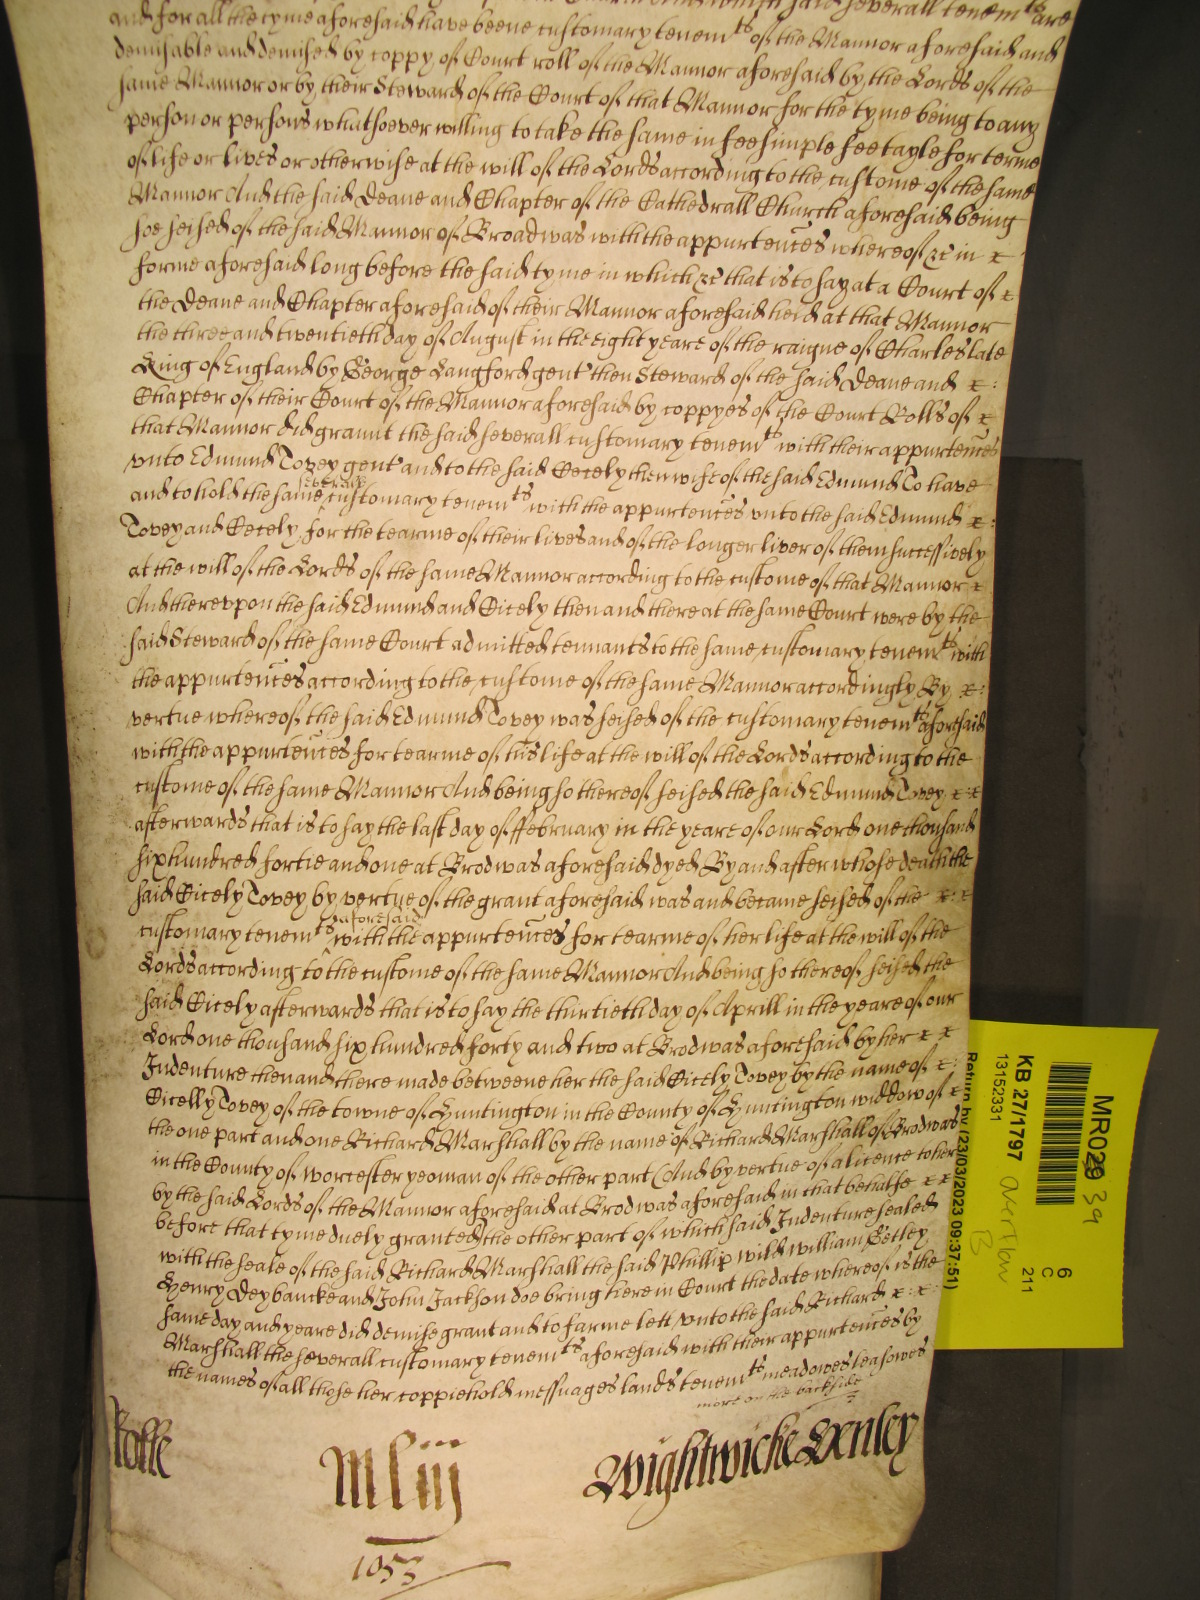 said severall tenemts are
and for all the tyme aforesaid have beene customary tenemts of the Mannor aforesaid and
demisable and demised by coppy of Court roll of the Mannor aforesaid by the Lords of the
same Mannor or by their Steward of the Court of that Mannor for the tyme being to any
person or persons whatsoever willing to take the same in fee simple fee tayle for terme
of life or lives or otherwise at the will of the Lords according to the custome of the same
Mannor And the said Deane and Chapter of the Cathedrall Church aforesaid being
soe seised of the said Mannor of Broadwas with the appurtences whereof &c in
forme aforesaid long before the said tyme in which &c that is to say at a Court of
the Deane and Chapter aforesaid of their Mannor aforesaid held at that Mannor
the three and twentieth day of August in the eight yeare of the raigne of Charles late
King of England by George Langford gent then Steward of the said Deane and
Chapter of their Court of the Mannor aforesaid by coppyes of the Court Rolls of
that Mannor did graunt the said severall customary tenemts with their appurtences
unto Edmund Tovey gent and to the said Cecely then wife of the said Edmund To have
and to hold the same severall customary tenemts with the appurtences unto the said Edmund
Tovey and Cecely for the tearme of their lives and of the longer liver of them successively
at the will of the Lords of the same Mannor according to the custome of that Mannor
And thereupon the said Edmund and Cicely then and there at the same Court were by the
said Steward of the same Court admitted tennants to the same customary tenemts with
the appurtences according to the custome of the same Mannor accordingly By
vertue whereof the said Edmund Tovey was seised of the customary tenemts aforesaid
with the appurtences for tearme of his life at the will of the Lords according to the
custome of the same Mannor And being so thereof seised the said Edmund Tovey
afterwards that is to say the last day of ffebruary in the yeare of our Lord one thousand
six hundred fortie and one at Brodwas aforesaid dyed By and after whose death the
said Cicely Tovey by vertue of the grant aforesaid was and became seised of the
customary tenemts aforesaid with the appurtences for tearme of her life at the will of the
Lords according to the custome of the same Mannor And being so thereof seised the
said Cicely afterwards that is to say the thirtieth day of Aprill in the yeare of our
Lord one thousand six hundred forty and two at Brodwas aforesaid by her
Indenture then and there made betweene her the said Cicely Tovey by the name of
Cicelly Tovey of the towne of Huntington in the County of Huntington widdow of
the one part and one Richard Marshall by the name of Richard Marshall of Brodwas
in the County of Worcester yeoman of the other part And by vertue of a licence to her
by the said Lords of the Mannor aforesaid at Brodwas aforesaid in that behalfe
before that tyme duely granted the other part of which said Indenture sealed
with the seale of the said Richard Marshall the said Phillip Wild William Betley
Henry Deybancke and John Jackson doe bring here in Court the date whereof is the
same day and yeare did demise grant and to farme lett unto the said Richard
Marshall the severall customary tenemts aforesaid with their appurtences by
the names of all those her coppiehold messuages lands tenemts meadowes leasowes
more on the backside
Rolfe
Mliij
Wightwicke Henley
1053
MR029 39
6
C
211
KB 27/1797
overflow
B
13152331
Return by (23/03/2023 09:37:51)